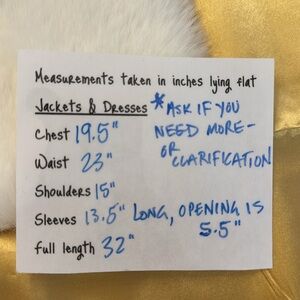 Measurements taken in inches lying flat
Jackets & Dresses
* ASK IF YOU
NEED MORE-
OR
CLARIFICATION
Chest 19.5"
Waist 23"
Shoulders 15"
Sleeves 13.5" LONG, OPENING IS
5.5"
full length 32"